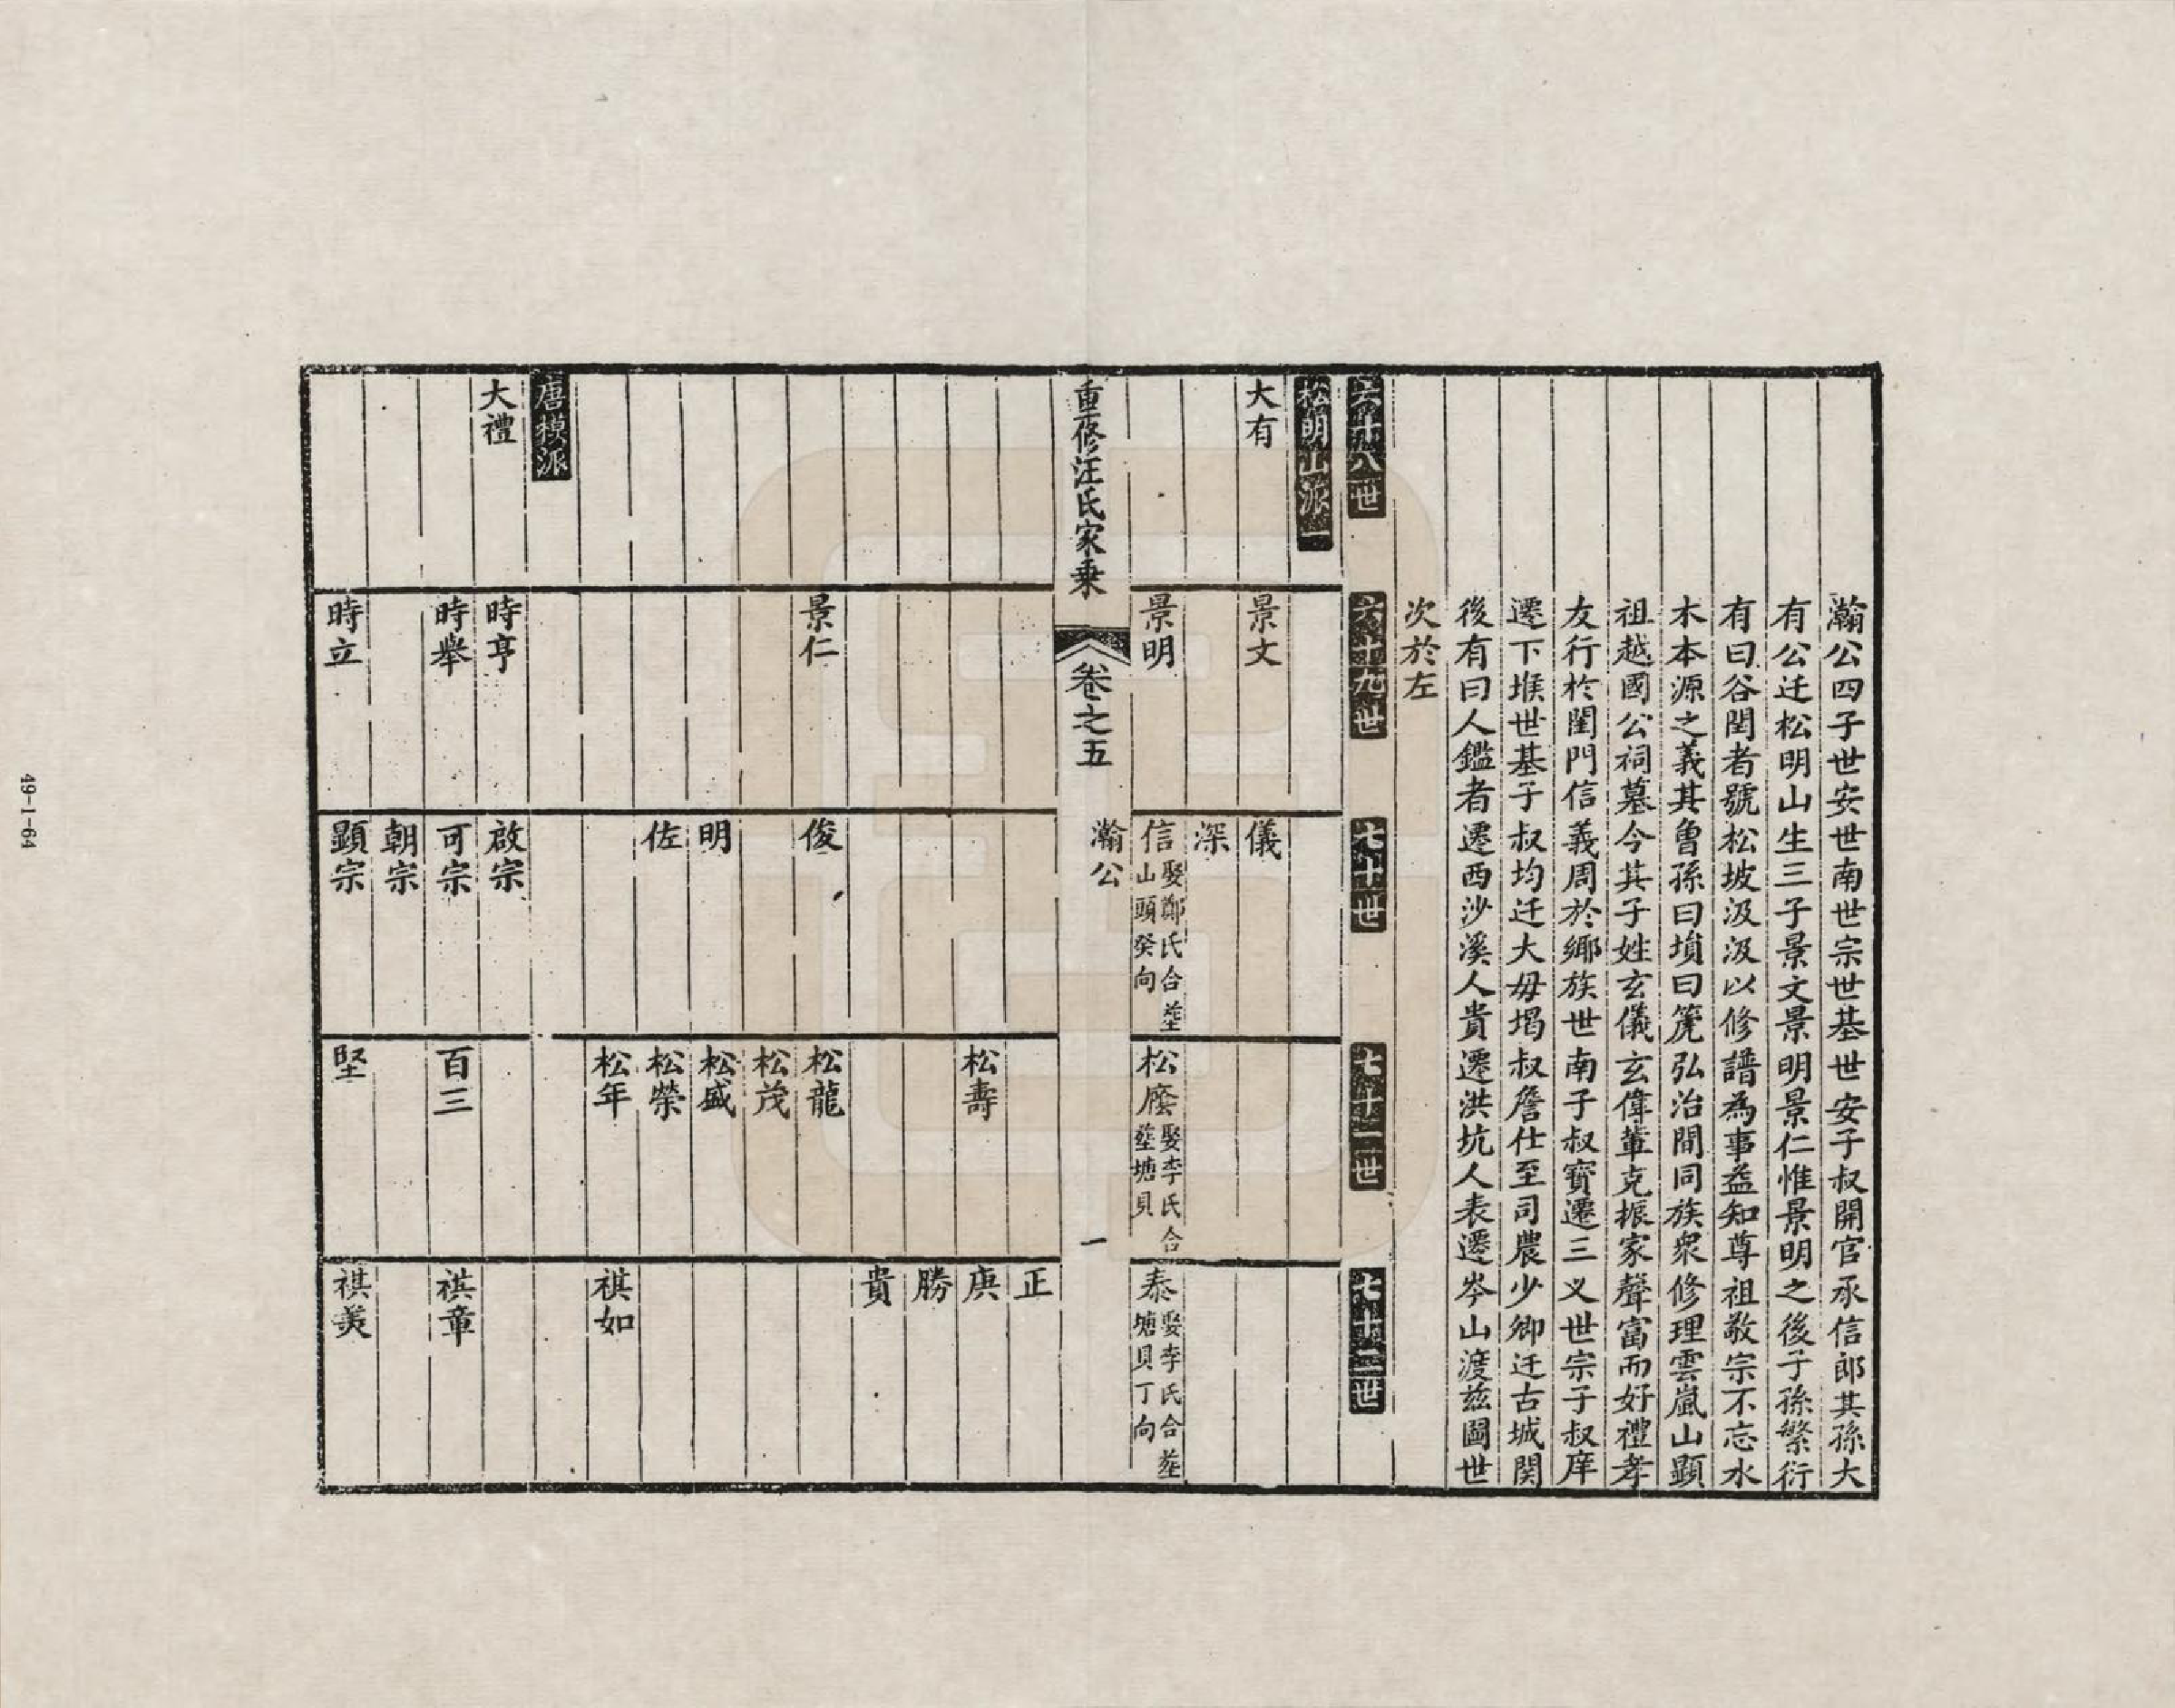 瀚公四子世安世南世宗世基世安子叔開官承信郎其孫大
有公迁松明山生三子景文景明景仁惟景明之後子孫繁衍
有曰谷閏者號松坡汲汲以修譜為事益知尊祖敬宗不忘水
木本源之義其魯孫曰塤曰箎弘治間同族衆修理雲嵐山顕
祖越國公祠墓今其子姓玄儀玄偉軰克振家聲富而好禮孝
友行於閨門信義周於鄉族世南子叔寳遷三义世宗子叔庠
遷下堠世基子叔均迁大毋堨叔詹仕至司農少卿迁古城関
後有曰人鑑者遷西沙溪人貴遷洪坑人表遷岑山渡兹圖世
次於左
六十八世 六十九世 七十世 七十一世 七十二世
松明山派一
大有 景文 儀
深
景明 信 娶鄭氏合塟山頭癸向 松 娶李氏合塟塘貝 泰 娶李氏合塟塘貝丁向
重修汪氏家乗 卷之五 瀚公 一
正
松壽 庚
勝
貴
景仁 俊 松龍
松茂
明 松盛
佐 松榮
松年 祺如
唐模派
大禮 時亨 啟宗
時舉 可宗 百三 祺章
朝宗
時立 顕宗 堅 祺美
49-1-64